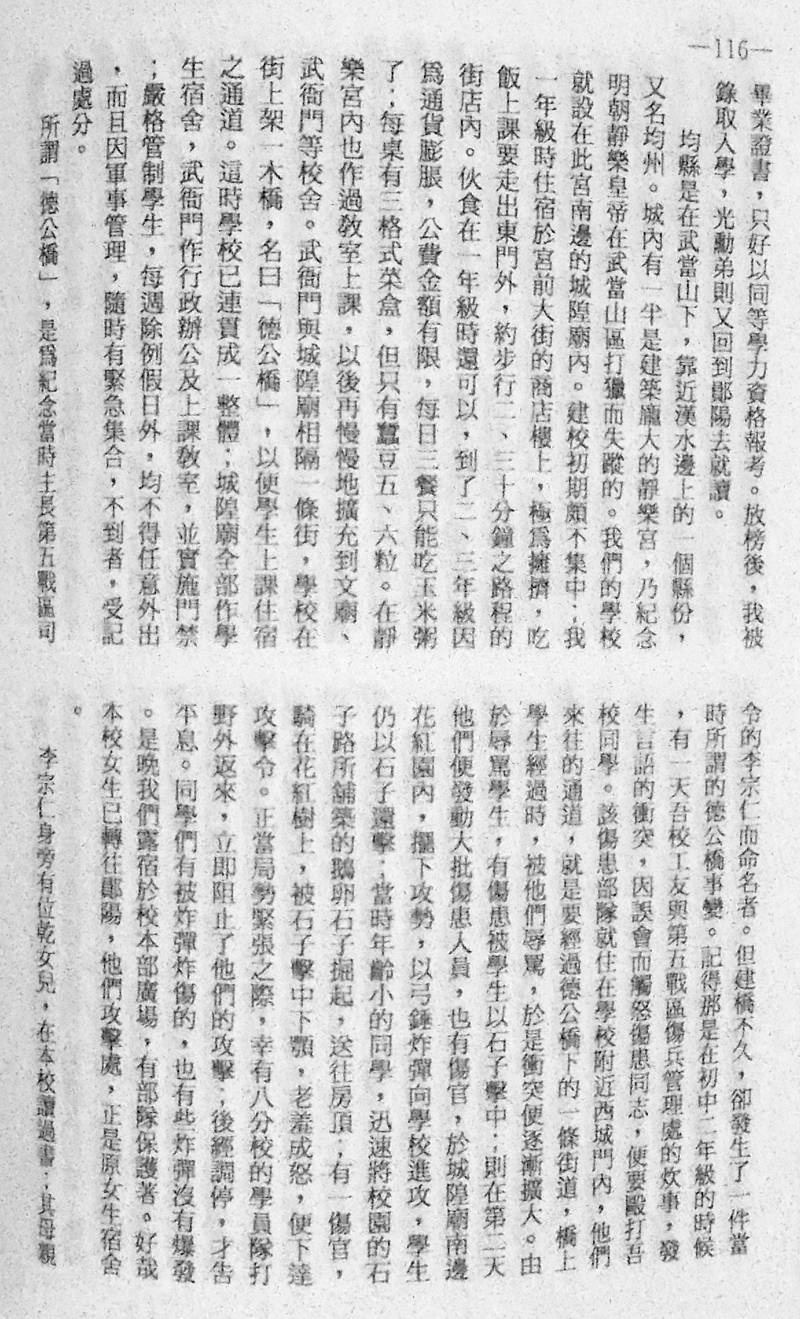 —116—
畢業證書，只好以同等學力資格報考。放榜後，我被
錄取入學，光勳弟則又回到鄖陽去就讀。
均縣是在武當山下，靠近漢水邊上的一個縣份，
又名均州。城內有一半是建築龐大的靜樂宮，乃紀念
明朝靜樂皇帝在武當山區打獵而失蹤的。我們的學校
就設在此宮南邊的城隍廟內。建校初期頗不集中；我
一年級時住宿於宮前大街的商店樓上，極為擁擠，吃
飯上課要走出東門外，約步行二、三十分鐘之路程的
街店內。伙食在一年級時還可以，到了二、三年級因
為通貨膨脹，公費金額有限，每日三餐只能吃玉米粥
了；每桌有三格式菜盒，但只有蠶豆五、六粒。在靜
樂宮內也作過教室上課，以後再慢慢地擴充到文廟、
武衙門等校舍。武衙門與城隍廟相隔一條街，學校在
街上架一木橋，名曰「德公橋」，以便學生上課住宿
之通道。這時學校已連貫成一整體；城隍廟全部作學
生宿舍，武衙門作行政辦公及上課教室，並實施門禁
；嚴格管制學生，每週除例假日外，均不得任意外出
，而且因軍事管理，隨時有緊急集合，不到者，受記
過處分。
所謂「德公橋」，是為紀念當時主長第五戰區司
令的李宗仁而命名者。但建橋不久，卻發生了一件當
時所謂的德公橋事變。記得那是在初中二年級的時候
，有一天吾校工友與第五戰區傷兵管理處的炊事，發
生言語的衝突，因誤會而觸怒傷患同志，便要毆打吾
校同學。該傷患部隊就住在學校附近西城門內，他們
來往的通道，就是要經過德公橋下的一條街道，橋上
學生經過時，被他們辱罵，於是衝突便逐漸擴大。由
於辱罵學生，有傷患被學生以石子擊中；則在第二天
他們便發動大批傷患人員，也有傷官，於城隍廟南邊
花紅園內，擺下攻勢，以弓錘炸彈向學校進攻，學生
仍以石子還擊；當時年齡小的同學，迅速將校園的石
子路所舖築的鵝卵石子掘起，送往房頂；有一傷官，
騎在花紅樹上，被石子擊中下顎，老羞成怒，便下達
攻擊令。正當局勢緊張之際，幸有八分校的學員隊打
野外返來，立即阻止了他們的攻擊；後經調停，才告
平息。同學們有被炸彈炸傷的，也有些炸彈沒有爆發
。是晚我們露宿於校本部廣場，有部隊保護著。好哉
本校女生已轉往鄖陽，他們攻擊處，正是原女生宿舍
。
李宗仁身旁有位乾女兒，在本校讀過書；其母親